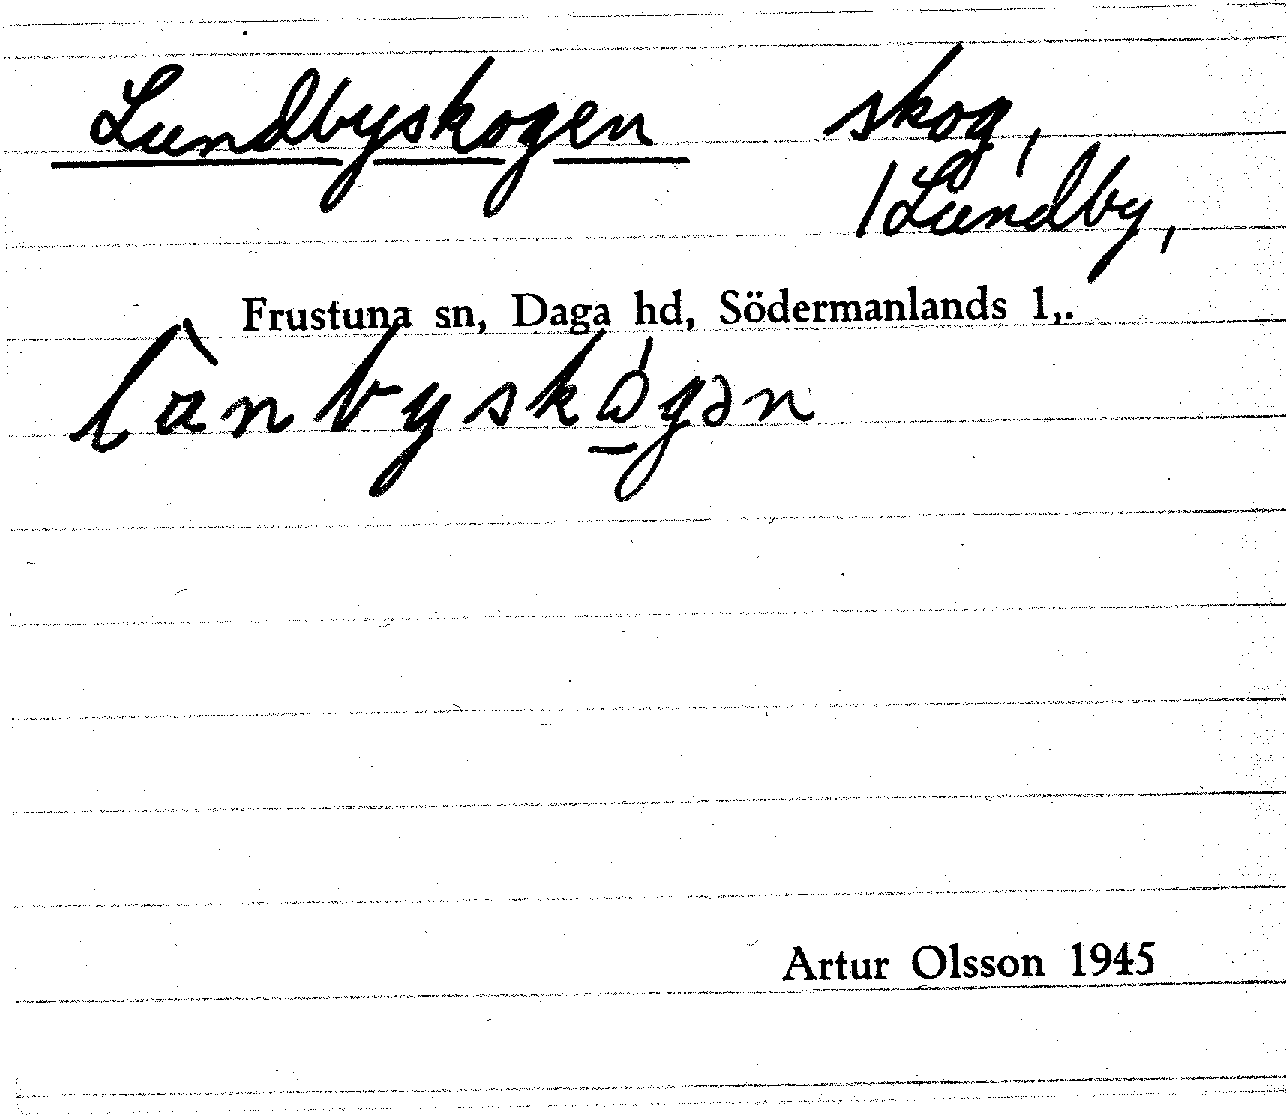 Lundbyskogen skog,
/Lundby,
Frustuna sn, Daga hd, Södermanlands l,.
Artur Olsson 1945